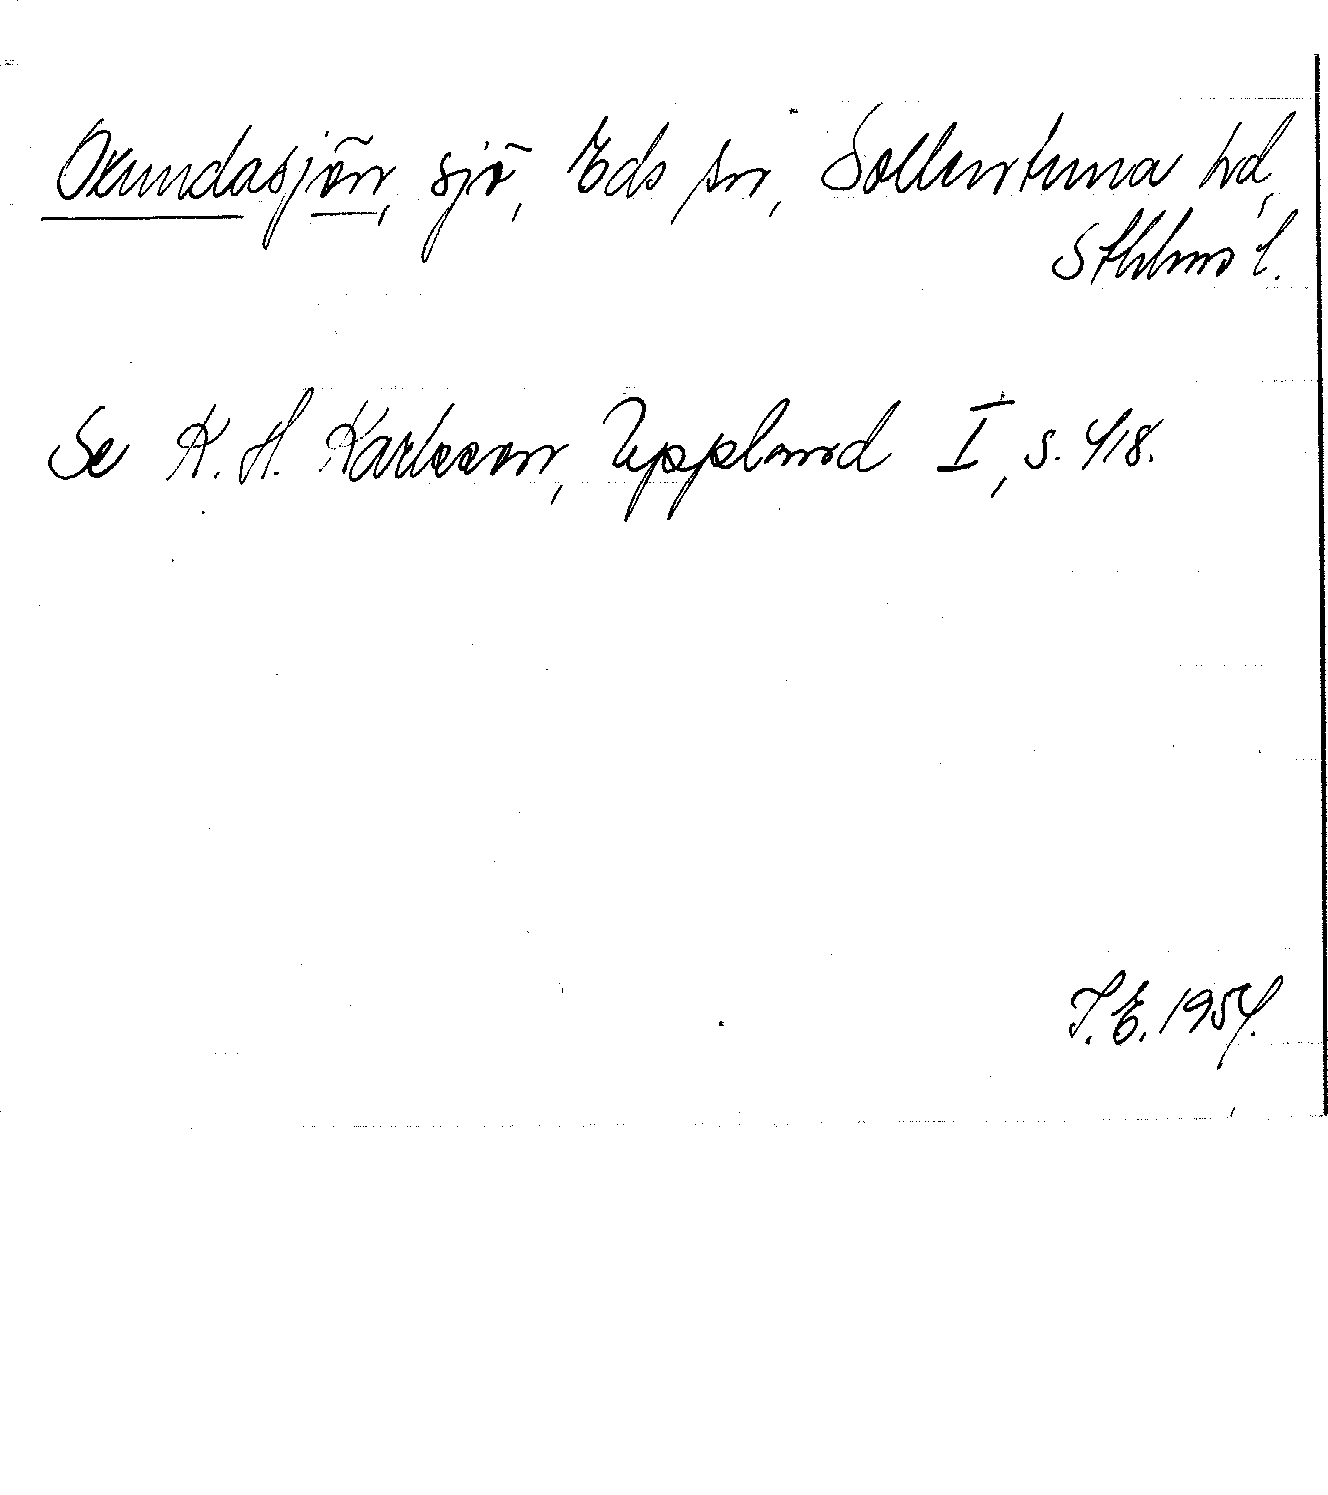 Oxundasjön, sjö, Eds sn, Sollentuna hd,
Sthlms l.
Se K. H. Karlsson, Uppland I, s. 418.
I. E. 1954.